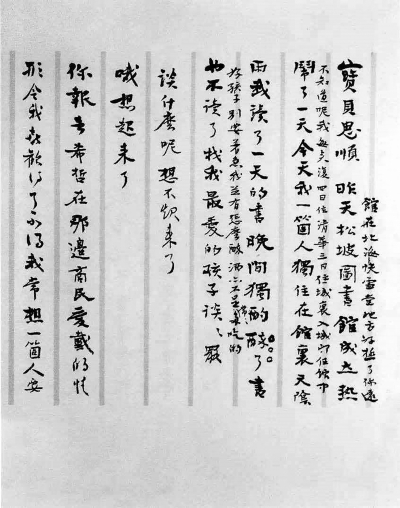 館在北海快雪堂地方好極了你還
寶貝思順 昨天松坡圖書館成立熱
不知道呢我每來復四日住清華三日住城裏入城即住館中
鬧了一天今天我一箇人獨住在館裏天陰
雨我讀了一天的書晚間獨酌醉了書
好孩子別要著急我並不怎麼醉酒亦不是常常多吃的
也不讀了找我最愛的孩子談〻罷
談什麼呢想不起來了
哦想起來了
你報告希哲在那邊商民愛戴的情
形令我喜歡得了不得我常想一箇人要